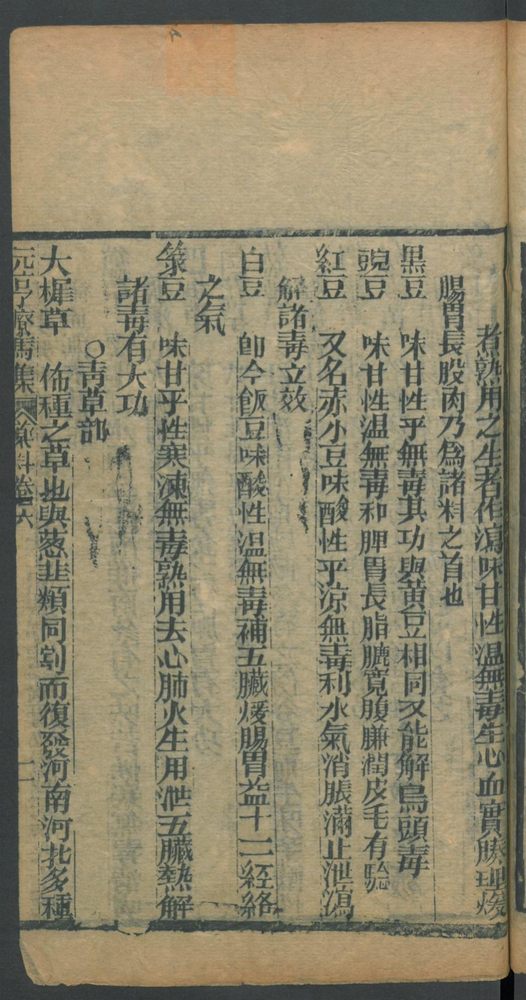 煮熟用之生者作瀉味甘性溫無毒生心血實腠理煖
腸胃長股肉乃爲諸料之首也
黒豆　味甘性平無毒其功與黄豆相同又能解烏頭毒
豌豆　味甘性溫無毒和脾胃長脂膘寬腹臁潤皮毛有驗
紅豆　又名赤小豆味酸性平凉無毒利水氣消脹滿止泄瀉
解諸毒立效
白豆　即今飯豆味酸性溫無毒補五臟煖腸胃益十二經絡
之氣
菉豆　味甘平性寒凍無毒熟用去心肺火生用泄五臟熱解
諸毒有大功
○青草部
大樨草　佈種之草也與葱韮類同割而復發河南河北多種
元亨療馬集　卷六